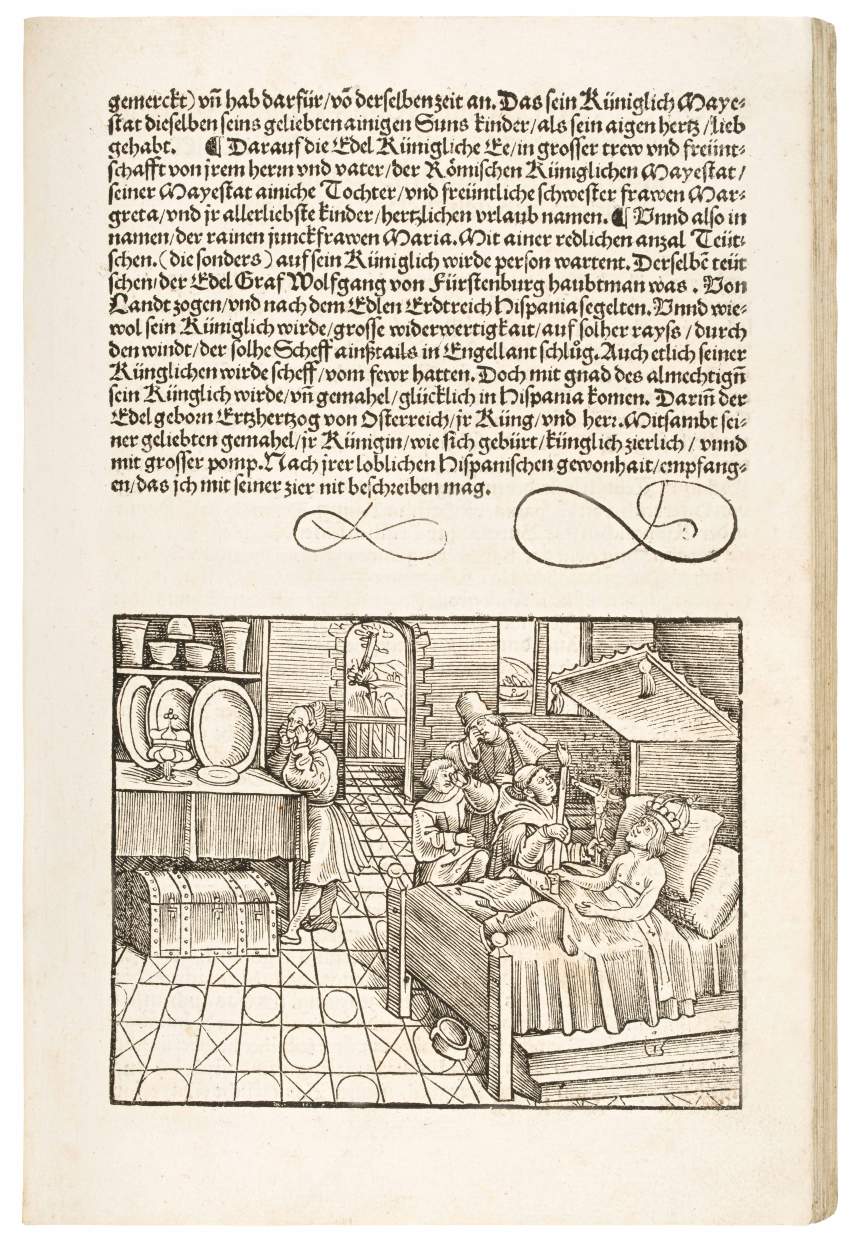 gemerckt) vñ hab darfür/võ derselben zeit an. Das sein Küniglich Maye⸗
stat dieselben seins geliebten ainigen Suns kinder/als sein aigen hertz/lieb
gehabt. ¶ Darauf die Edel Künigliche Ee/in grosser trew vnd freünt⸗
schafft von jrem herrn vnd vater/der Römischen Küniglichen Mayestat/
seiner Mayestat ainiche Tochter/vnd freüntliche schwester frawen Mar⸗
greta/vnd jr allerliebste kinder/hertzlichen vrlaub namen. ¶ Vnnd also in
namen/der rainen junckfrawen Maria. Mit ainer redlichen anzal Teüt⸗
schen. (die sonders) auf sein Küniglich wirde person wartent. Derselbẽ teüt
schen/der Edel Graf Wolfgang von Fürstenburg haubtman was. Von
Landt zogen/vnd nach dem Edlen Erdtreich Hispania segelten. Vnnd wie⸗
wol sein Küniglich wirde/grosse widerwertigkait/auf solher rayss/durch
den windt/der solhe Scheff ainßtails in Engellant schlůg. Auch etlich seiner
Künglichen wirde scheff/vom fewr hatten. Doch mit gnad des almechtigñ
sein Künglich wirde/vñ gemahel/glücklich in Hispania komen. Dariñ der
Edel geborn Ertzhertzog von Osterreich/jr Küng/vnd herr. Mitsambt sei⸗
ner geliebten gemahel/jr Künigin/wie sich gebürt/künglich zierlich/vnnd
mit grosser pomp. Nach jrer loblichen Hispanischen gewonhait/empfang⸗
en/das jch mit seiner zier nit beschreiben mag.